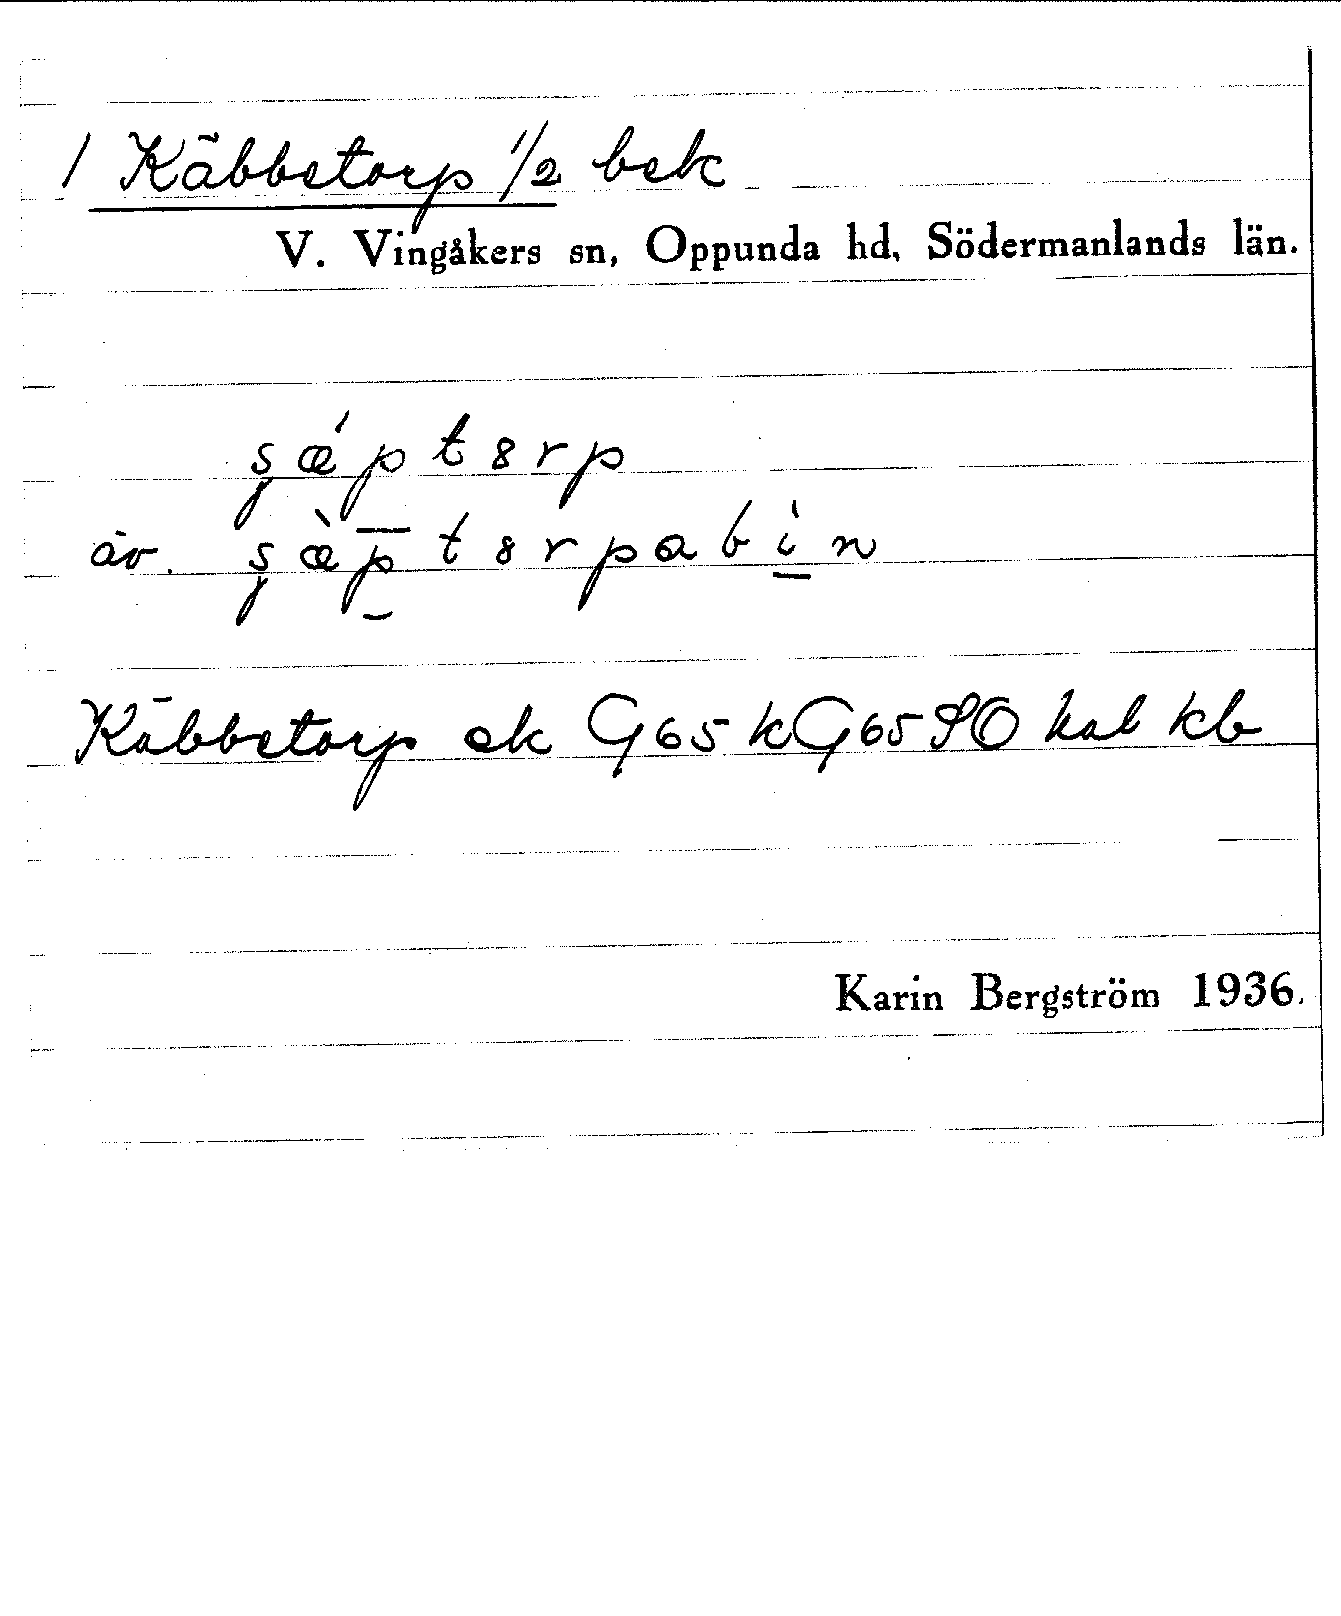 / Käbbetorp 1/2 bek
V. Vingåkers sn, Oppunda hd, Södermanlands län.
şǽptsrp
äv. şæ̀p̱tsrpabi̱n
Käbbetorp ek G65 kG65 SO hal kb
Karin Bergström 1936.